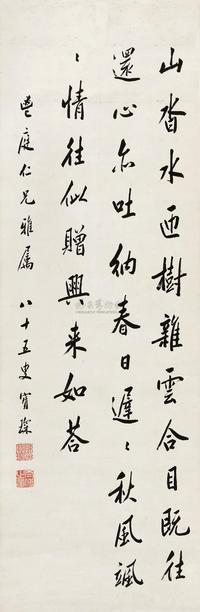 山沓水迊樹雜雲合目既往
還心亦吐納春日遲〻秋風颯
〻情往似贈興来如荅
豊庭仁兄雅屬 八十五叟寶琛